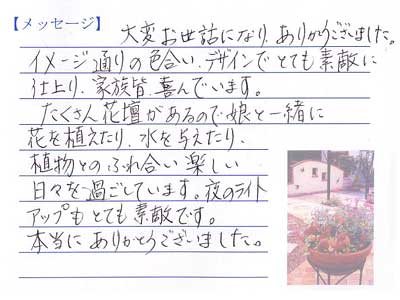 【メッセージ】
大変お世話になり、ありがとうございました。
イメージ通りの色合い、デザインでとても素敵に
仕上り、家族皆、喜んでいます。
たくさん花壇があるので娘と一緒に
花を植えたり、水を与えたり、
植物とのふれ合い楽しい
日々を過ごしています。夜のライト
アップもとても素敵です。
本当にありがとうございました。